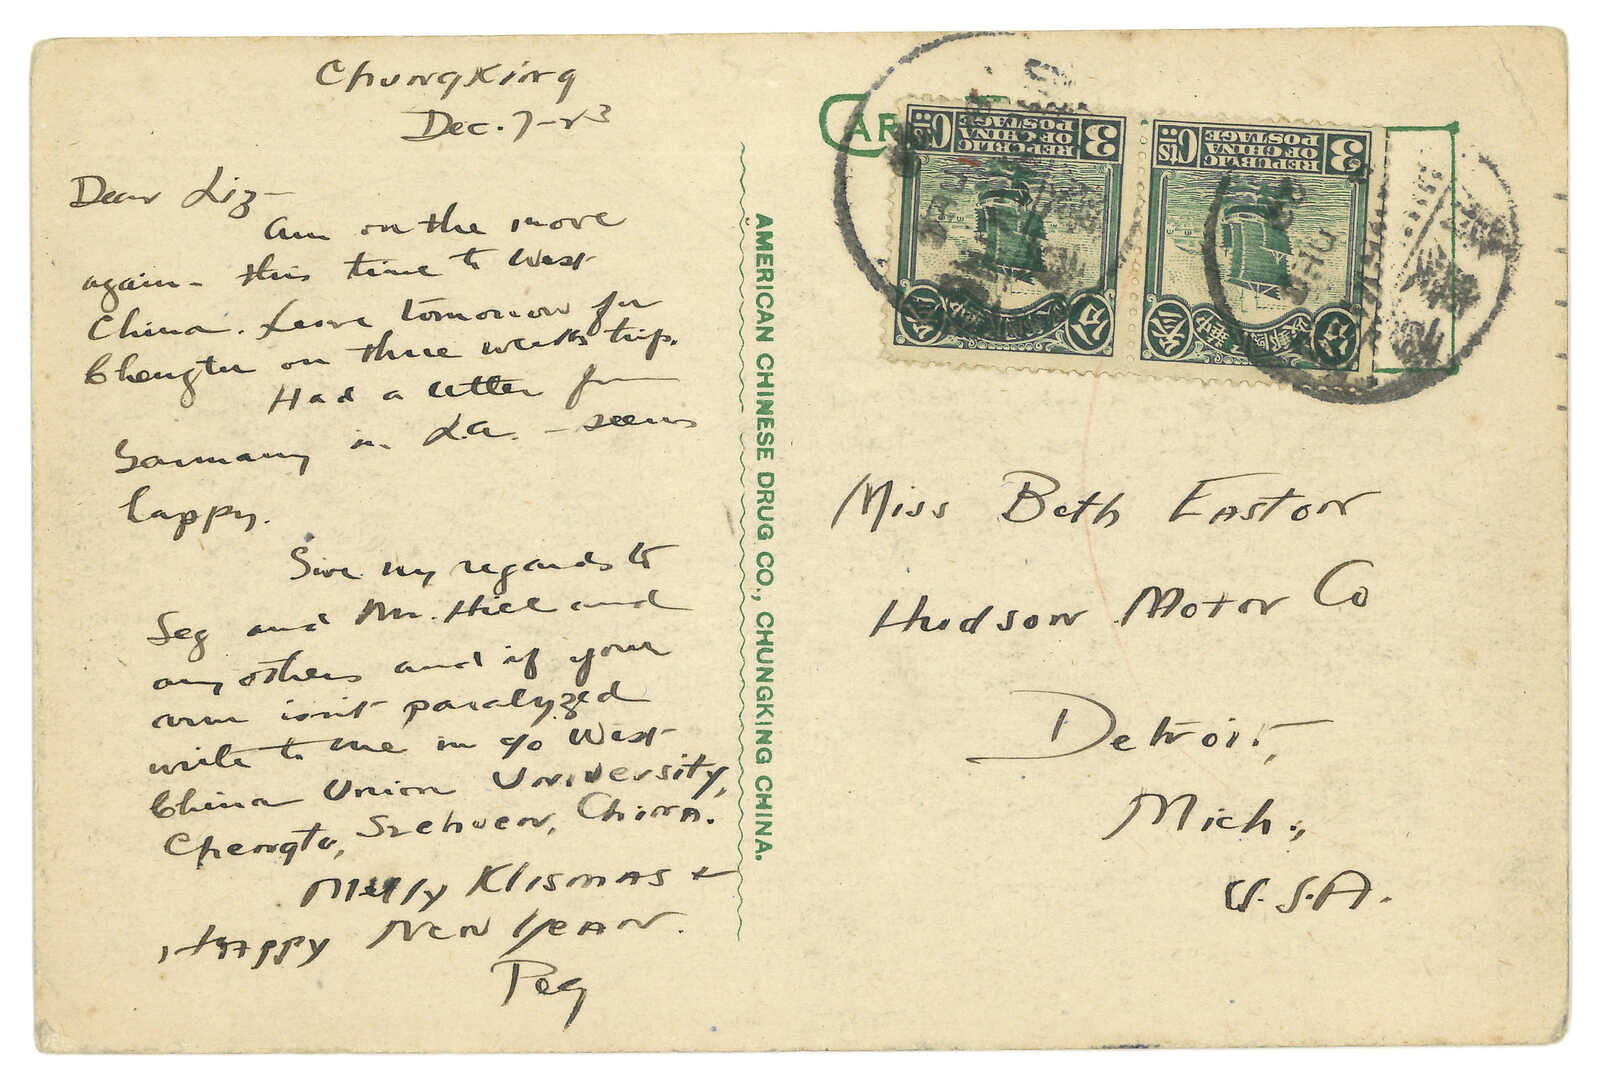 Chungking
Dec. 7-23
Dear Liz-
Am on the move
again - this time to West
China. Leave tomorrow for
Chengtu on three weeks trip.
Had a letter from
in L.A. - seems
happy.
Give my regards to
Seg and Mr. Hill and
any others and if your
arm isn't paralyzed
write to me in c/o West
China Union University,
Chengtu, Szehuen, China.
Melly Klismas +
Happy New Year.
Peg
AMERICAN CHINESE DRUG CO., CHUNGKING CHINA.
CAR
3 Cts:
REPUBLIC
OF CHINA
POSTAGE
3 Cts:
REPUBLIC
OF CHINA
POSTAGE
Miss Beth Easton
Hudson Motor Co
Detroit,
Mich.,
U.S.A.